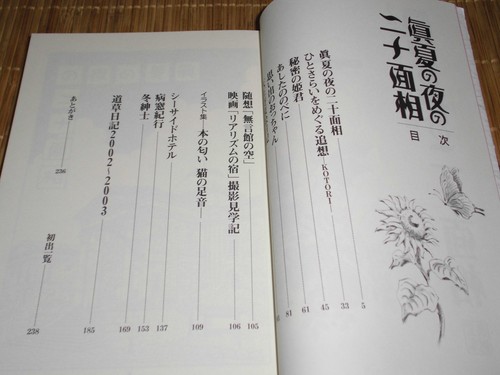 眞夏の夜の
二十面相
目次
眞夏の夜の二十面相 5
ひとさらいをめぐる追想—KOTORI— 33
秘密の姫君 45
あしたのべに 61
思い出のおっちゃん 81
随想「無言館の空」 105
映画「リアリズムの宿」撮影見学記 106
イラスト集—本の匂い 猫の足音— 109
シーサイドホテル 137
病窓紀行 153
冬紳士 169
道草日記2002〜2003 185
あとがき 236
初出一覧 238